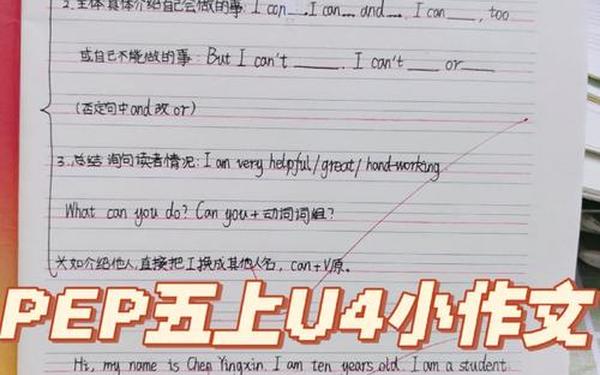 2.主体:具体介绍自己会做的事: I can___. I can___ and___. I can___, too
或自己不能做的事: But I can't ___. I can't ___ or___
(否定句中and改or)
3.总结 询问读者情况: I am very helpful/great/hand-working
What can you do? Can you+动词词组?
如介绍他人,直接把I换成其他人名, can+V原。
PEP五上U4小作文
Hi, my name is Chen Yingxin. I am ten years old. I am a student